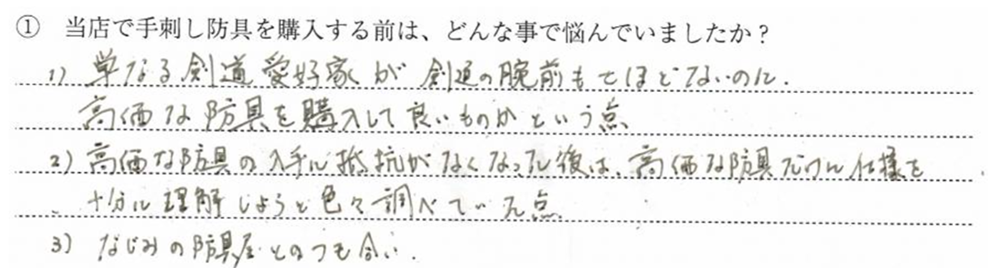 ① 当店で手刺し防具を購入する前は、どんな事で悩んでいましたか？
1) 単なる剣道愛好家が剣道の腕前もさほどないのに、
高価な防具を購入して良いものかという点
2) 高価な防具の入手に抵抗がなくなった後は、高価な防具だけに仕様を
十分に理解しようと色々調べていた点
3) なじみの防具屋とのつき合い.